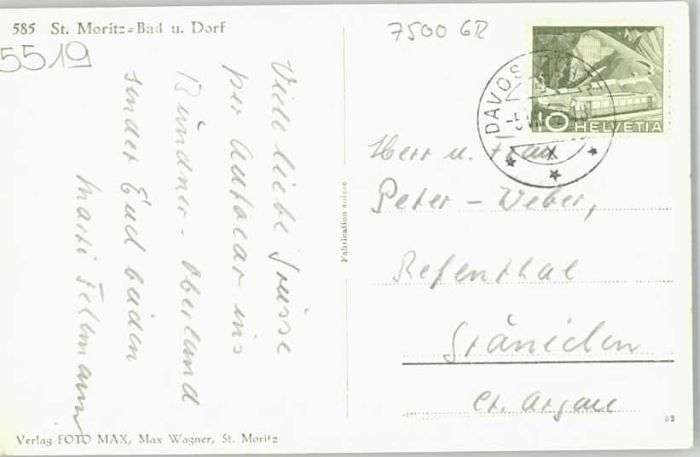 585 St. Moritz-Bad u. Dorf
5519
7500 GR
DAVOS
HELVETIA
10
Viele liebe Grüsse
per Autocar ins
Bündner-Oberland
sendet Euch beiden
Marti Fehlmann
Fabrication suisse
Herr u. Frau
Peter-Weber,
Refenthal
Gränichen
Ct. Argau
Verlag FOTO MAX, Max Wagner, St. Moritz